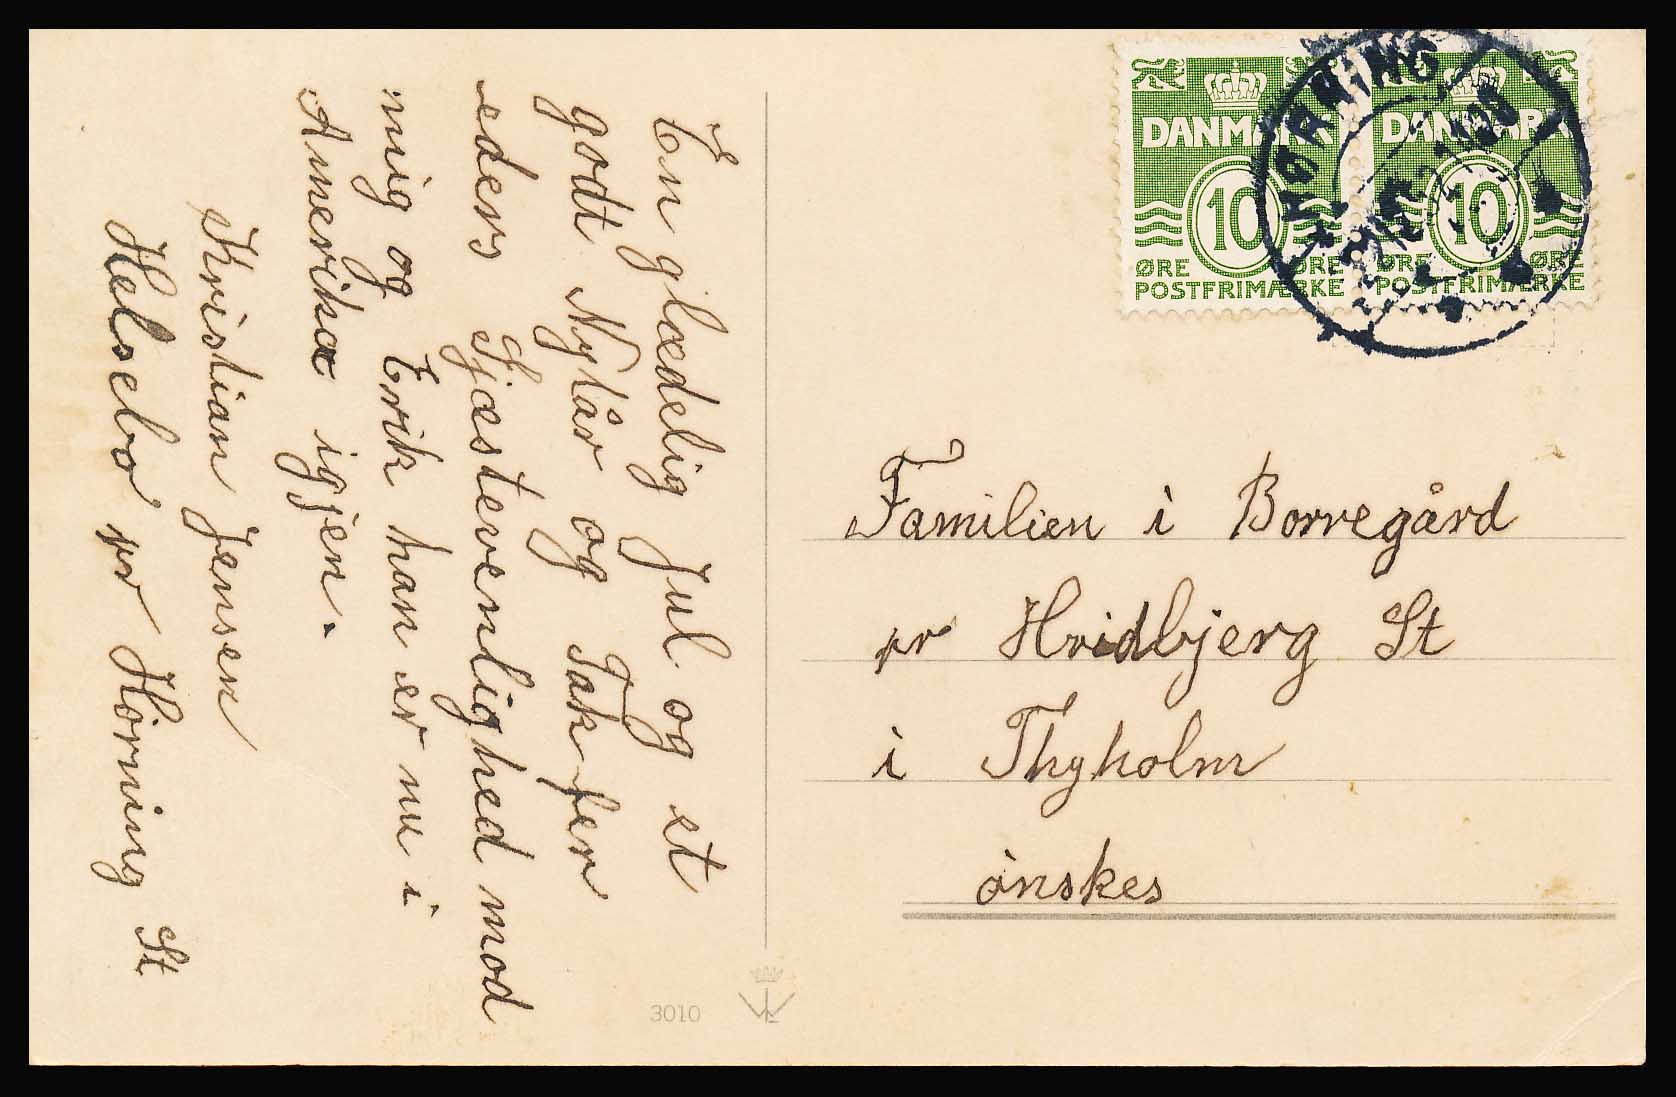 En glædelig Jul og et
godt Nytår og Tak for
eders Gjæstevenlighed mod
mig og Erik han er nu i
Amerika igjen.
Kristian Jensen
Helsebo pr Hörning St
3010
DANMARK
10
ØRE ØRE
POSTFRIMÆRKE
DANMARK
10
ØRE ØRE
POSTFRIMÆRKE
HØRNING
Familien i Borregård
pr Hvidbjerg St
i Thyholm
önskes